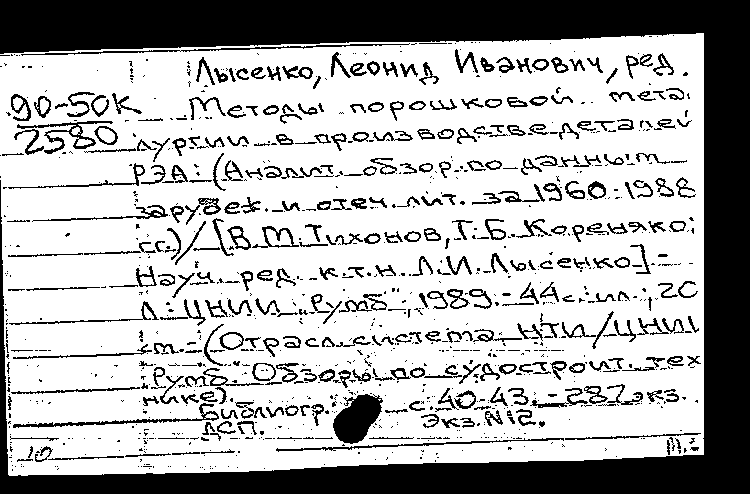 Лысенко, Леонид Иванович, ред.
90-50К
2580
Методы порошковой метал
лургии в производстве деталей
РЭА: (Аналит. обзор по данным
зарубеж. и отеч. лит. за 1960-1988
гг.) / [В.М. Тихонов, Г.Б. Кореняко;
Науч. ред. к.т.н. Л.И. Лысенко] -
Л.: ЦНИИ "Румб", 1989. - 44 с.: ил.; 20
см. - (Отрасл. система НТИ / ЦНИИ
"Румб". Обзоры по судостроит. тех
нике).
Библиогр. с. 40-43. - 287 экз.
ДСП. Экз. N12.
10